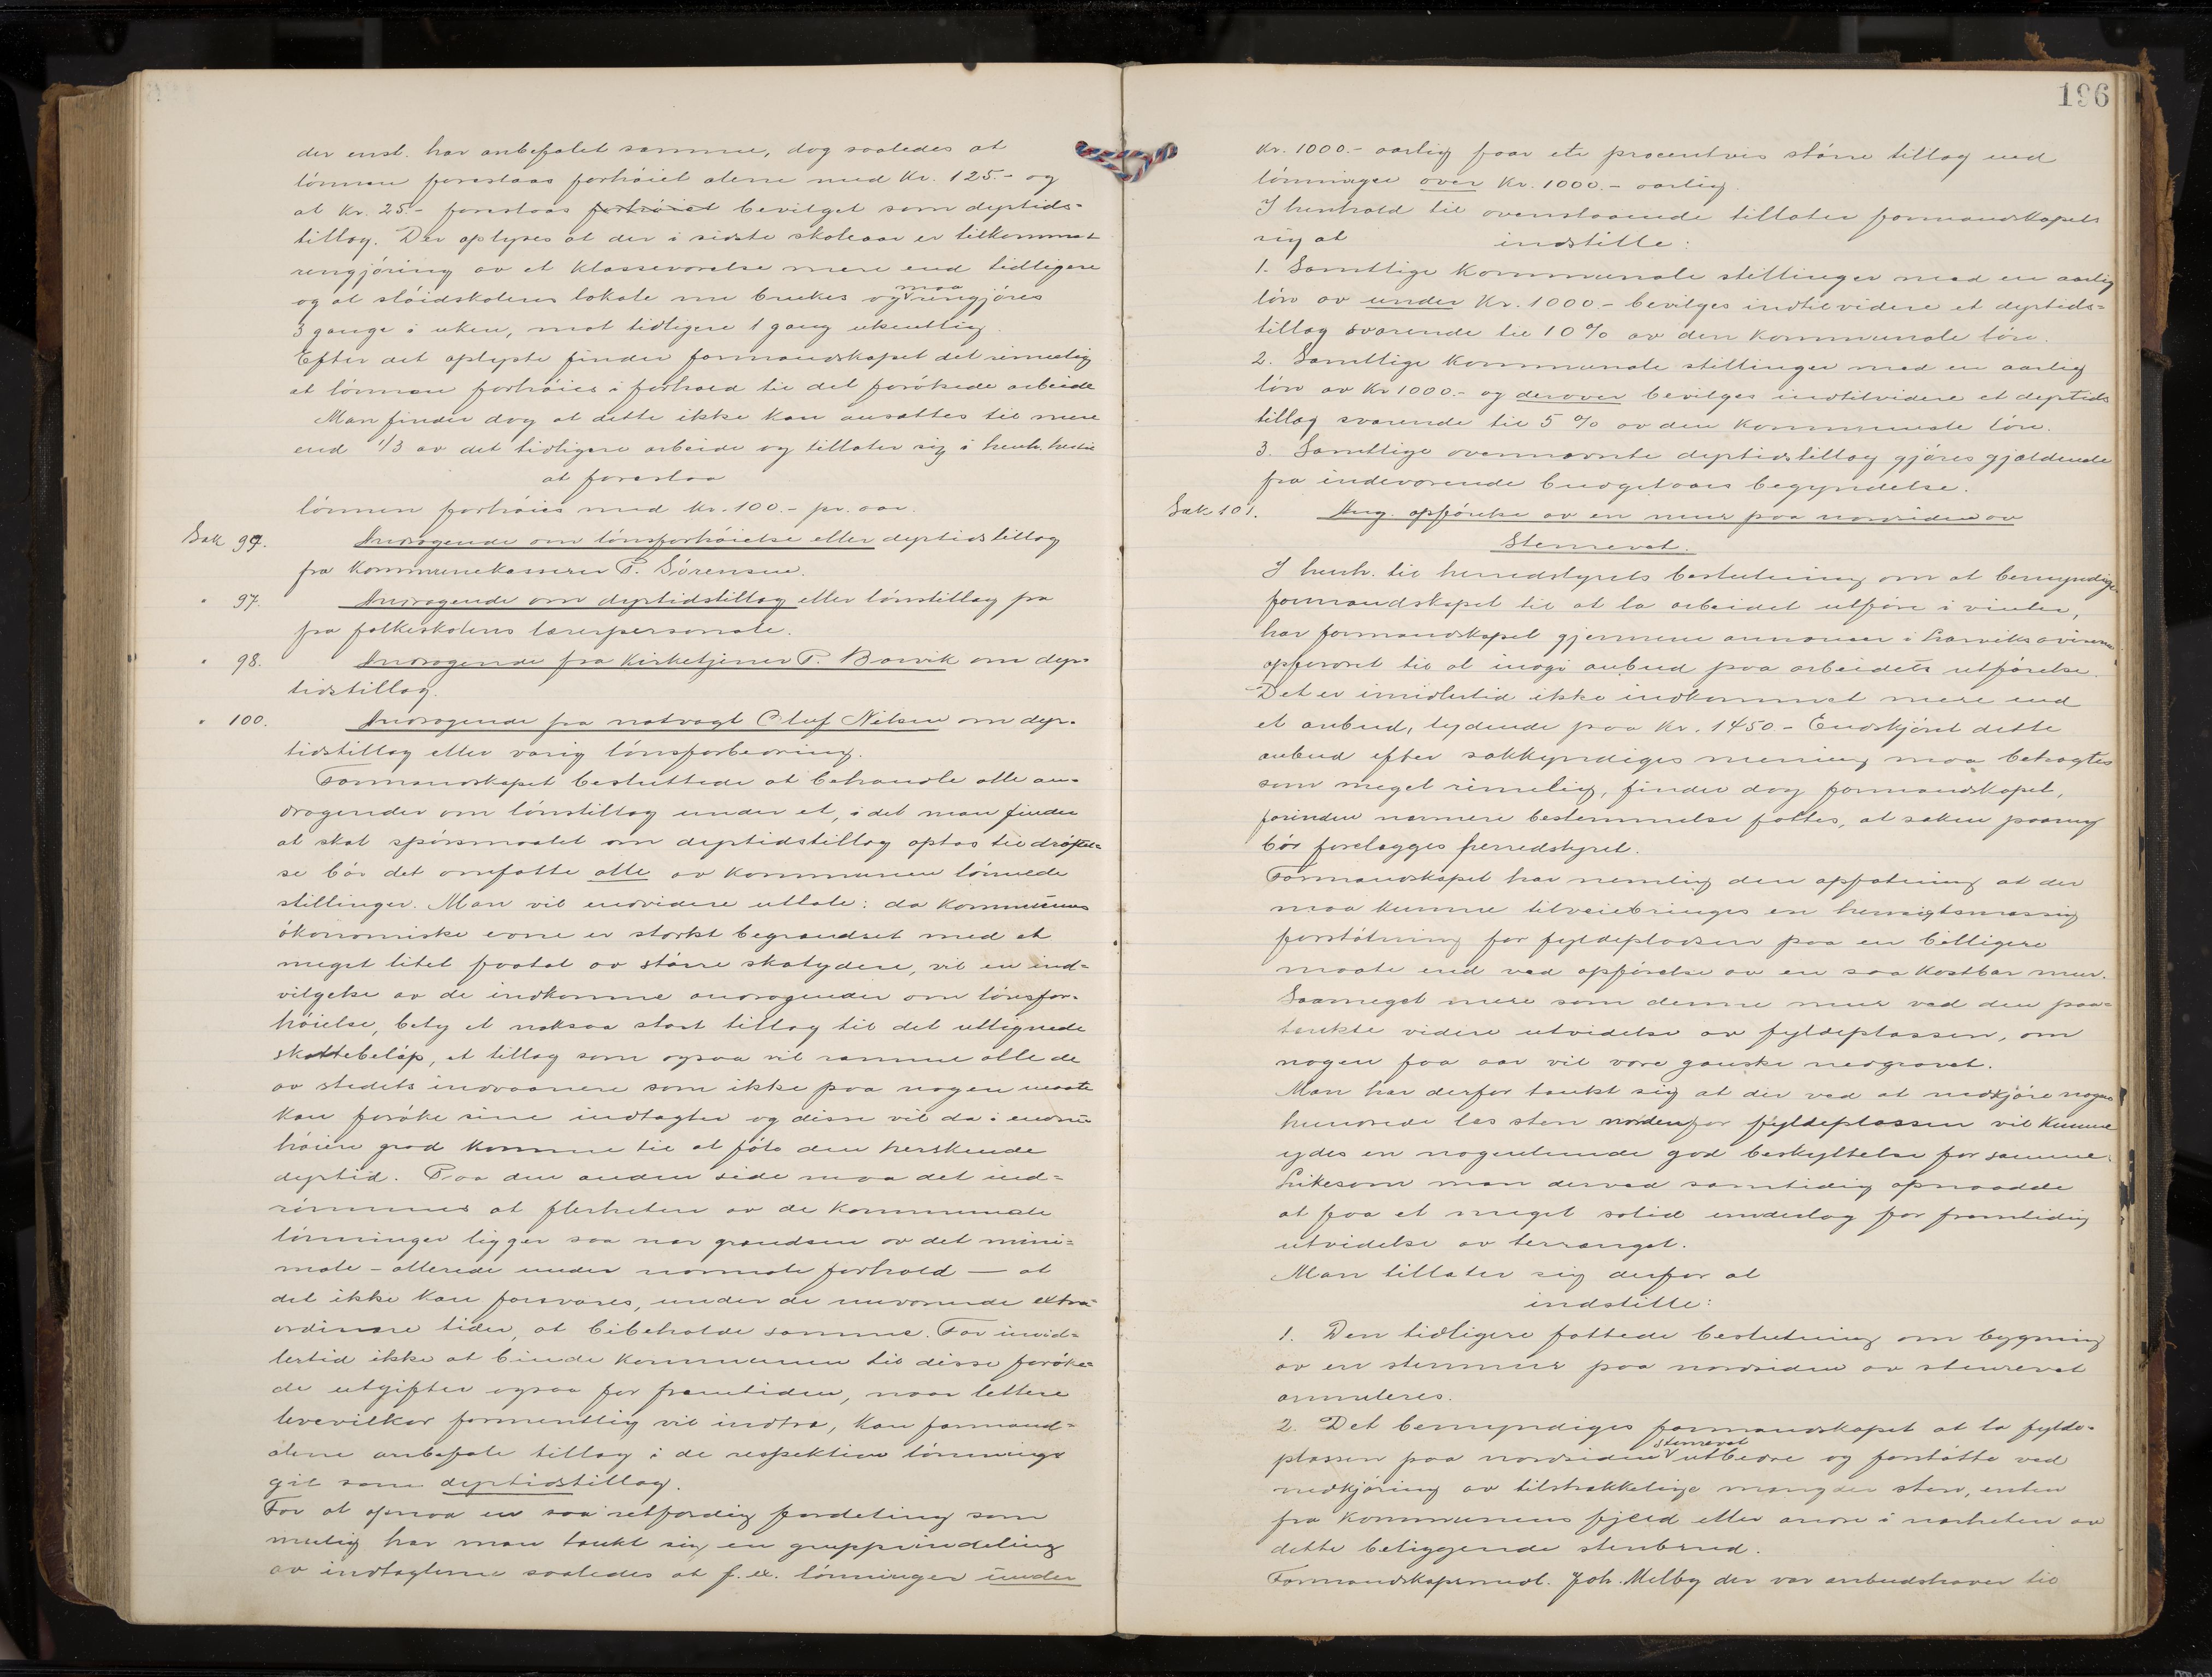 der enst. har anbefalet samme, dog saaledes at
lönnen forestaas forhöiet alene med Kr. 125.- og
at Kr. 25.- forestaas forhöiet bevilget som dyrtids-
tillæg. Der oplyses at der i sidste skoleaar er tilkommet
rengjöring av et klasseværelse mere end tidligere
og at slöidskolens lokale nu brukes og maa rengjöres
3 gange i uken, mot tidligere 1 gang ukentlig.
Efter det oplyste finder formandskapet det rimelig
at lönnen forhöies i forhold til det forökede arbeide
Man finder dog at dette ikke kan ansættes til mere
end 1/3 av det tidligere arbeide og tillater sig i henh. hertil
at foreslaa
lönnen forhöies med Kr. 100.- pr. aar.
Sak 99. Andragende om lönsforhöielse eller dyrtidstillæg
fra Kommunekasserer P. Sörensen.
" 97. Andragende om dyrtidstillæg eller lönstillæg fra
fra folkeskolens lærerpersonale.
" 98. Andragende fra Kirketjener P. Barvik om dyr-
tidstillæg.
" 100. Andragende fra natvagt Oluf Nilsen om dyr-
tidstillæg eller varig lönsforbedring.
Formandskapet besluttede at behandle alle an-
dragender om lönstillæg under et, idet man finder
at skal spörsmaalet om dyrtidstillæg optas til dröftel-
se bör det omfatte alle av kommunen lönnede
stillinger. Man vil endvidere uttale: da kommunens
ökonomiske evne er sterkt begrændset med et
meget litet faatal av större skatydere, vil en ind-
vilgelse av de indkomne andragender om lönsfor-
höielse, bety et noksaa stort tillæg til det utlignede
skattebelöp, et tillæg som ogsaa vil ramme alle de
av stedets indvaanere som ikke paa nogen maate
kan foröke sine indtægter og disse vil da i endnu
höiere grad komme til at föle den herskende
dyrtid. Paa den anden side maa det ind-
römmes at flerheten av de kommunale
lönninger ligger saa nær grændsen av det mini-
male - allerede under normale forhold — at
det ikke kan forsvares, under de nuværende extra-
ordinære tider, at bibeholde samme. For imid-
lertid ikke at binde kommunen til disse foröke-
de utgifter ogsaa for fremtiden, naar lettere
levevilkaar formentlig vil indtræ, kan formand-
alene anbefale tillæg i de respektive lönninger
git som dyrtidstillæg.
For at opnaa en saa retfærdig fordeling som
mulig har man tænkt sig en gruppeindeling
av indtægterne saaledes at f.ex. lönninger under
196
Kr. 1000.- aarlig faar ete procentvis större tillæg end
lönninger over Kr. 1000.- aarlig.
I henhold til ovenstaaende tillater formandskapets
sig at indstille:
1. Samtlige kommunale stillinger med en aarlig
lön av under Kr. 1000- bevilges indtilvidere et dyrtids-
tillæg svarende til 10% av den kommunale lön.
2. Samtlige kommunale stillinger med en aarlig
lön av Kr 1000.- og derover bevilges indtilvidere et dyrtids
tillæg svarende til 5% av den kommunale lön.
3. Samtlige ovennævnte dyrtidstillæg gjöres gjældende
fra indeværende budgetaars begyndelse.
Sak 101. Ang. opförelse av en mur paa nordsiden av
Stenrevet.
I henh. til herredstyrets beslutning om at bemyndige
formandskapet til at la arbeidet utföre i vinter,
har formandskapet gjennem annonser i Larviksaviserne
opfordret til at indgi anbud paa arbeidets utförelse.
Det er imidlertid ikke indkommet mere end
et anbud, lydende paa Kr. 1450- Endskjönt dette
anbud efter sakkyndiges mening maa betragtes
som meget rimelig, finder dog formandskapet,
forinden nærmere bestemmelse fattes, at saken paany
bör forelægges herredstyret.
Formandskapet har nemlig den opfatning at der
maa kunne tilveiebringes en hensigtsmæssig
forstötning for fyldepladsen paa en billigere
maate end ved opförelse av en saa kostbar mur.
Saameget mere som denne mur ved den paa-
tænkte videre utvidelse av fyldeplassen, om
nogen faa aar vil være ganske nedgravet.
Man har derfor tænkt sig at der ved at nedkjöre nogen
hundrede læs sten nordenfor fyldeplassen vil kunne
ydes en nogenlunde god beskyttelse for samme.
Likesom man derved samtidig opnaadde
at faa et meget solid underlag for fremtidig
utvidelse av terrænget.
Man tillater sig derfor at
indstille:
1. Den tidligere fattede beslutning om bygning
av en stenmur paa nordsiden av stenrevet
annuleres.
2. Det bemyndiges formandskapet at la fylde-
plassen paa nordsiden stenrevet utbedre og forstötte ved
nedkjöring av tilstrækkelige mængder sten, enten
fra kommunens fjeld eller andre i nærheten av
dette beliggende stenbrud.
Formandskapsmedl. Joh. Melby der var anbudshaver til